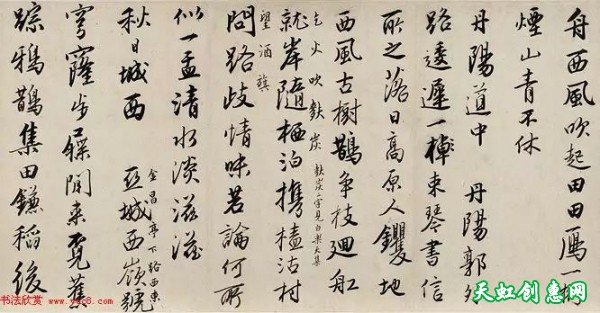 舟西風吹起田田鴈一行
煙山青不休
丹陽道中 丹陽郭外
路逶遲一棹東琴書信
所之落日高原人钁地
西風古樹鵲爭枝廻舡
乞火吹麩炭 麩炭二字見白樂天集
就岸隨栖泊攜榼沽村
望酒旗
問路歧情味若論何所
似一盂清水淡滋滋
秋日城西 亞城西嶺號
金昌亭下路西東
穹窿步屧閒来覓舊
踪鴉鵲集田鎌稻後
书法欣赏 www.yac8.com
天虹创惠网